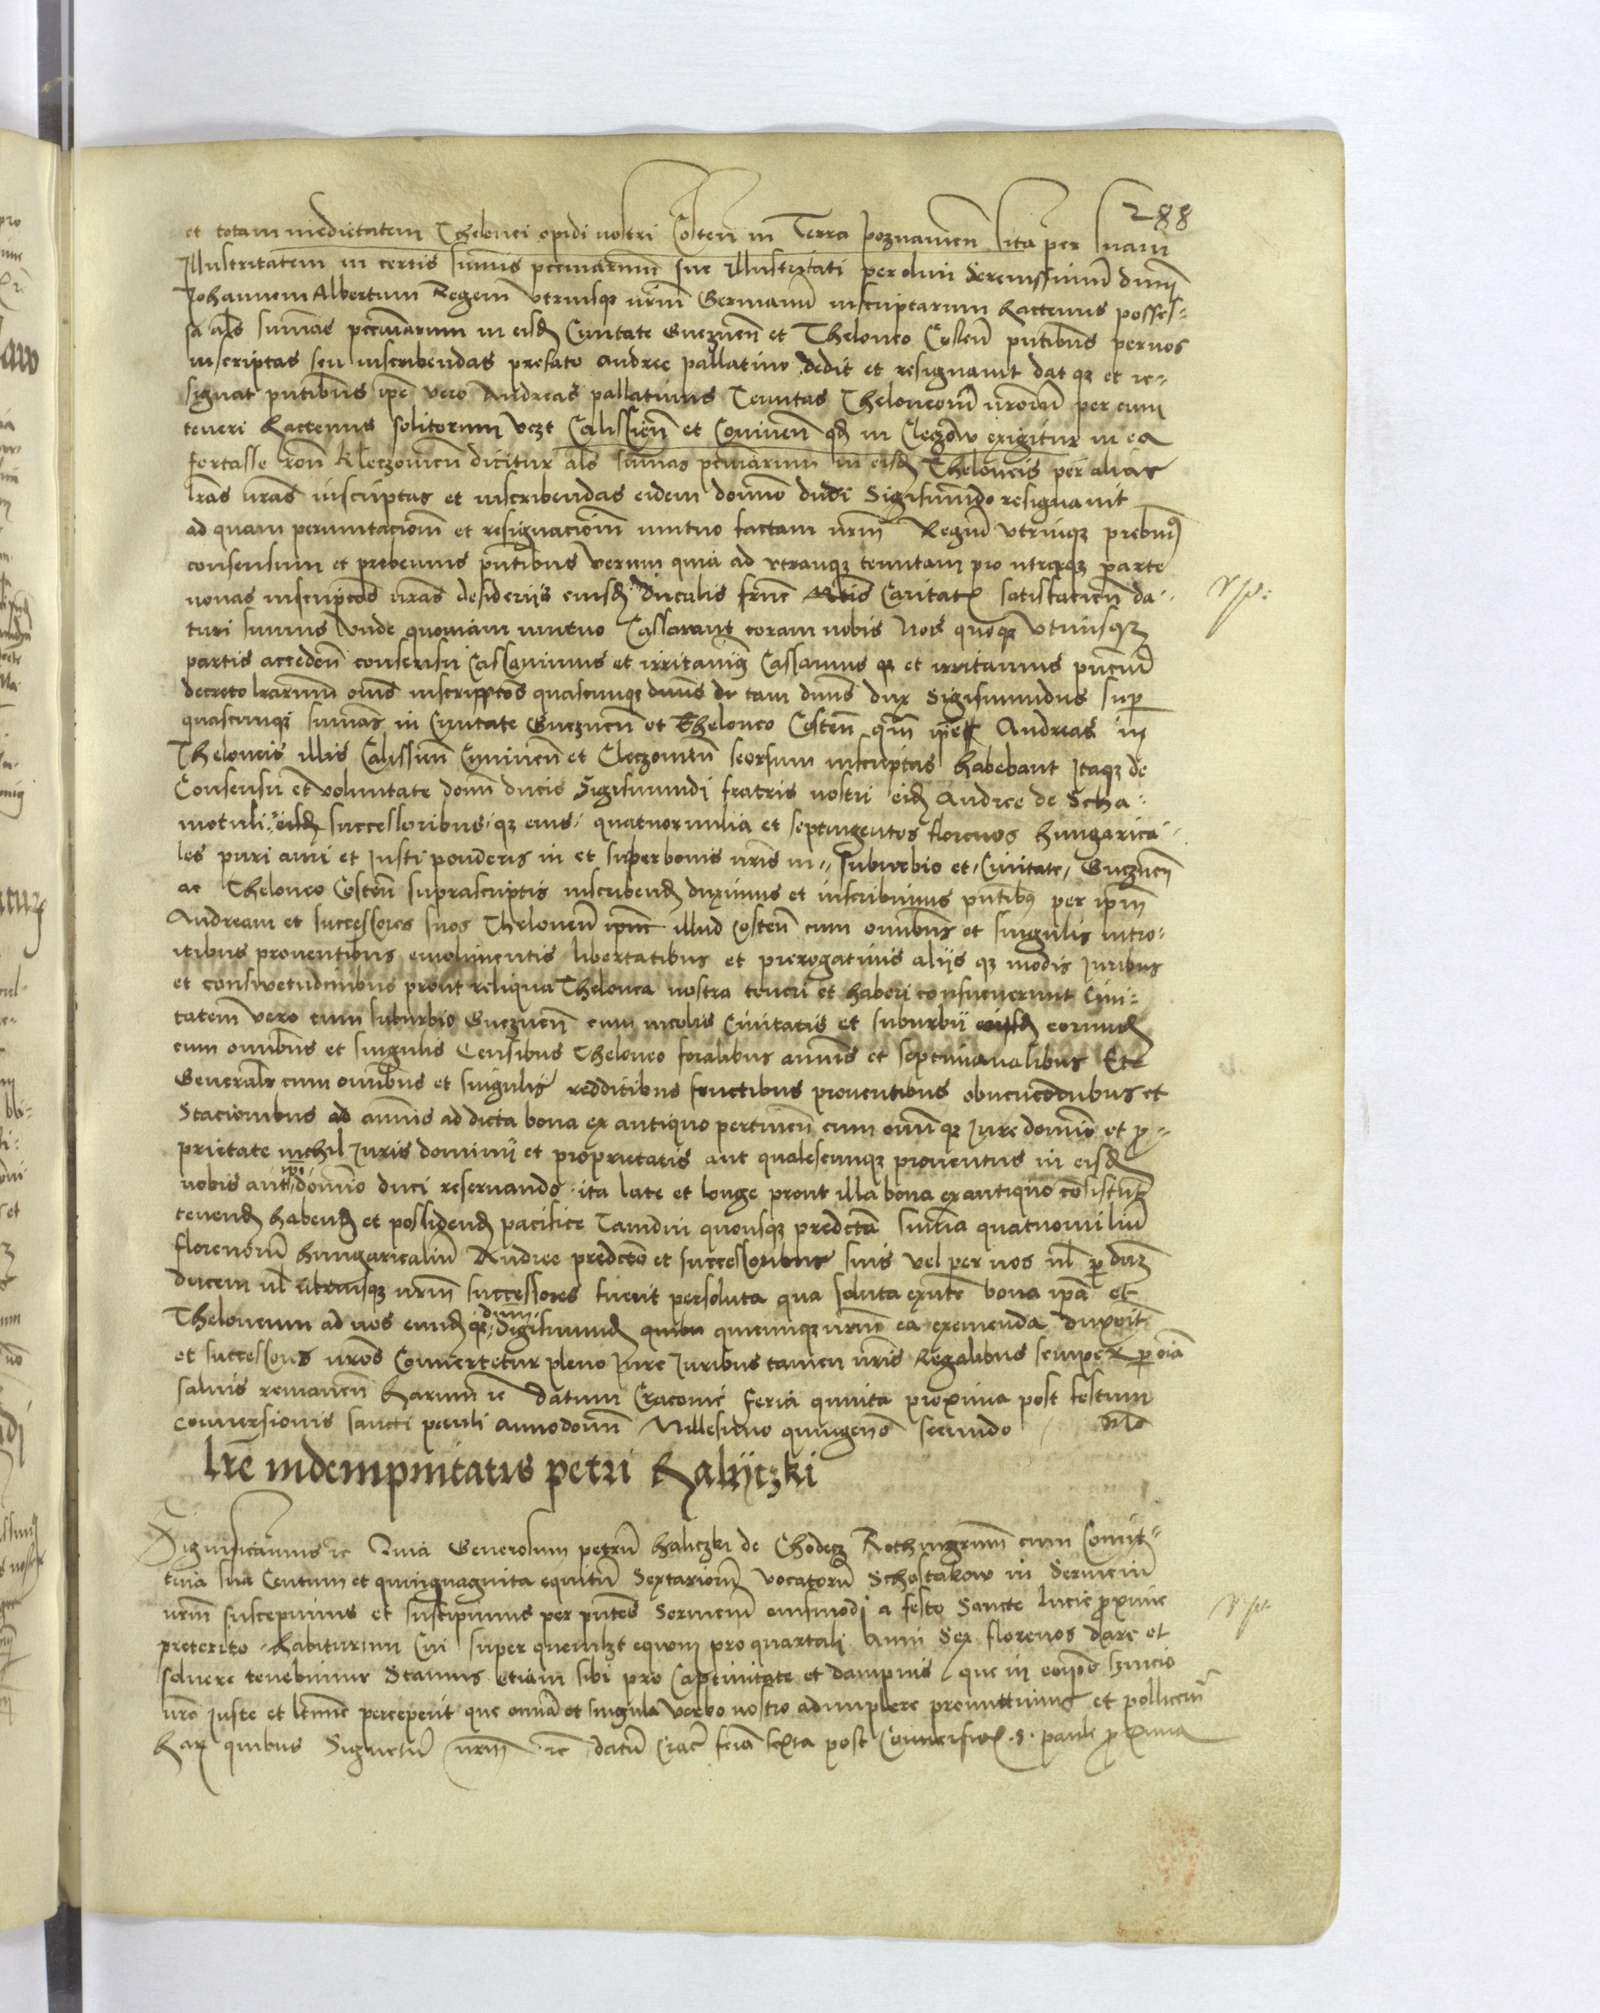 288
et totam medietatem Thelonei opidi nostri Costen in Terra Poznanien sita per suam
Illustritatem in certis sumis pecuniarum sue illustritati per olim Serenissimu dnm
Johannem Albertum Regem utriusqz nrm Germanu inscriptarum hactenus posses-
sa als sumas pecuniarum in eisd Civitate Gneznen et Theloneo Costen pntibus per nos
inscriptas seu inscribendas prefato Andree pallatino dedit et resignavit dat qz et re-
signat pntibus ipe vero Andreas pallatinus Tenutas Theloneoru nroru per eum
teneri hactenus solitorum vczt Calissien et Coninen qd in Cleczow exigitur in ea
fortasse ron Kleczovien dicitur als sumas pecuniarum in eisd Theloneis per alias
lras nras inscriptas et inscribendas eidem domino duci Sigismundo resignavit
ad quam permutacionem et resignacionem mutuo factam nrm Regiu utriusqz prebuim9
consensum et prebemus pntibus verum quia ad utranqz tenutam pro utraqz parte
novas inscripcoes nras desideriis eiusd ducalis frne Caritatis satisfacien da-
turi sumus Unde quoniam mutuo Cassarant coram nobis Nos quoqz Utriusqz
partis acceden consensu Cassavimus et irritavim9 Cassamus qz et irritamus pncium
decreto lrarum oms inscripcoes quascunqz tam dnus dux Sigismundus sup
quascunqz sumas in Civitate Gneznen et Theloneo Costen qm ipe Andreas in
Theloneis illis Calissien Coninen et Cleczovien seorsum inscriptas habebant Itaqz de
Consensu et voluntate domni ducis Sigismundi fratris nostri eid Andree de Scha-
motuli successoribus qz eius quatuor milia et septingentos florenos hungarica-
les puri auri et Justi ponderis in et super bonis nris in suburbio et Civitate Gneznen
ac Theloneo Costen suprascriptis inscribend duximus et inscribimus pntib9 per ipm
Andream et successores suos Theloneu ipm illud Costen cum omnibus et singulis intro-
itibus proventibus emolumentis libertatibus et prerogativis aliis qz modis Juribus
et consuetudinibus prout reliqua Thelonea nostra teneri et haberi consueverunt Civi-
tatem vero cum suburbio Gneznen cum incolis Civitatis et suburbii eorund
cum omnibus et singulis Censibus Theloneo foralibus annis et septimanalibus Etc
Generalr cum omnibus et singulis redditibus fructibus proventibus obvencionibus et
Stacionibus ad annis ad dicta bona ex antiquo pertinen cum omni qz Jure domio et p-
prietate nichil Juris dominii et proprietatis aut qualescunqz proventus in eisd
nobis aut ipi domino duci reservando ita late et longe prout illa bona ex antiquo consistunt
tenend habend et possidend pacifice Tamdiu quousqz predictam sumam quatuor miliu
florenoru hungaricaliu Andree predicto et successoribus suis vel per nos vl p dnm
ducem vl utriusqz nrm successores fuerit persoluta qua soluta extunc bona ipa et
Theloneum ad nos eund qz dnm Sigismund quicunqz nrm ea exemenda duxerit
et successores nros Convertetur pleno Jure Juribus tamen nris Regalibus semper p oia
salvis remanen harum rc datum Cracovie feria quinta proxima post festum
conversionis sancti pauli anno domni Millesimo quingeno secundo
lre indempnitatis petri haliczki
Significamus rc Quia Generosum petru haliczki de Chodecz Rothmgrum cum Comit-
tiva sua Centum et quinquaginta equitu Sextarioru vocatoru Schostakow in Serviciu
nrm suscepimus et suscipimus per pntes Serviciu eiusmodi a festo Sancte lucie pxime
preterito habiturum Cui super quemlzt equum pro quartali Anni Sex florenos dare et
solvere tenebimur Stamus etiam sibi pro Captivitate et dampnis que in eoipo svicio
nro iuste et ltme perceperit que omnia et singula verbo nostro adimplere promittimus et pollicem
har quibus Sigillu nrm rc datu Crac feria sexta post Conversiois S. pauli pxima